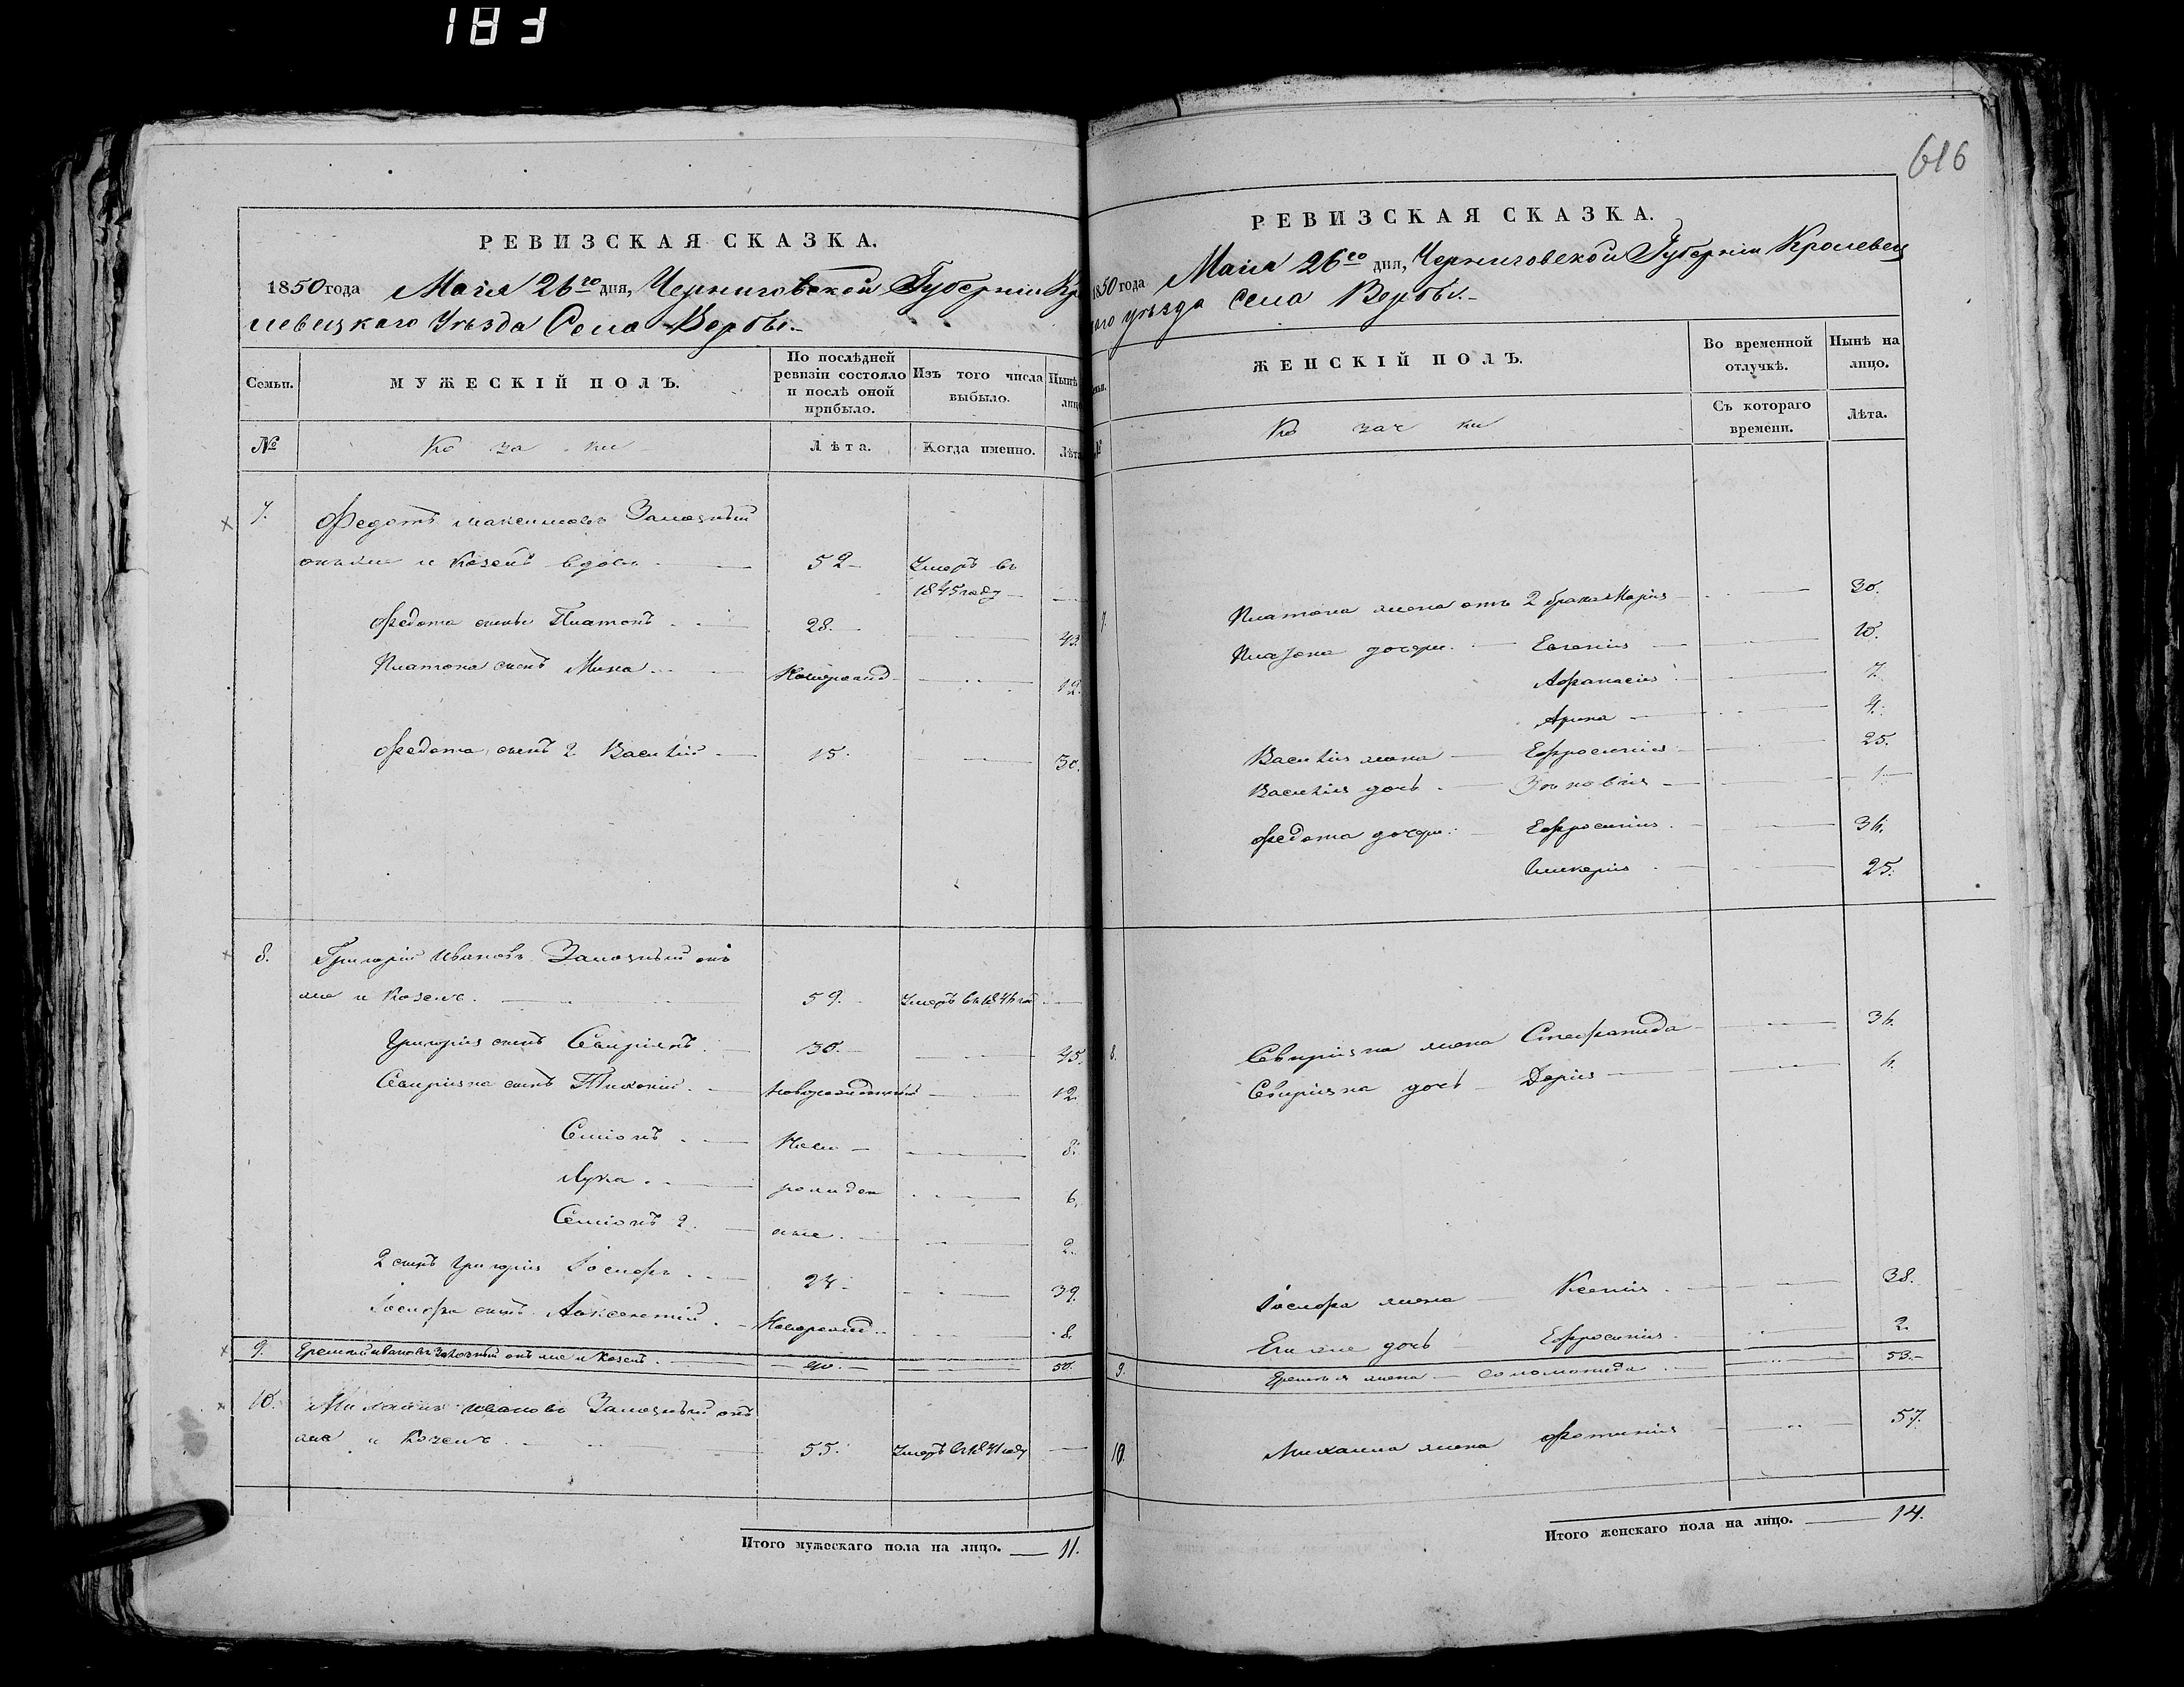 183
РЕВИЗСКАЯ СКАЗКА.
1850 года Маія 26го дня, Черниговской Губерніи Кро
левецкаго Уѣзда Села Вербы.
Семьи.
МУЖЕСКІЙ ПОЛЪ.
По послѣдней ревизіи состояло и послѣ оной прибыло.
Изъ того числа выбыло.
Нынѣ лицо
№
Козаки
Лѣта.
Когда именно.
Лѣта
7. Федотъ Максимовъ
онъ же и Козелъ вдовъ 52 Умеръ въ
1845 году
Федота сынъ Платонъ 28. 43.
Платона сынъ Мина Новорожд 12.
Федота сынъ 2 Василій 15. 30.
8. Григорій Ивановъ онъ
же и Козелъ. 59. Умеръ въ 1846 год
Григорія сынъ Свиріянъ. 30. 45.
Свиріяна сынъ Тихоній. Новорожденный 12.
Семіонъ Ново 8.
Лука рожден 6.
Семіонъ 2. ные. 2.
2 сынъ Григорія Іосифъ 24. 39.
Іосифа сынъ Авксентій Новорожд. 8.
9. Еремій Ивановъ онъ же и Козелъ. 50.
10. Ивановъ онъ
же и Козелъ. 55. Умеръ въ 1841 году
Итого мужескаго пола на лицо. 11.
616
РЕВИЗСКАЯ СКАЗКА.
1850 года Маія 26го дня, Черниговской Губерніи Кролевец
каго уѣзда села Вербы.
ЖЕНСКІЙ ПОЛЪ.
Во временной отлучкѣ.
Нынѣ на лицо.
№
Козачки
Съ котораго времени.
Лѣта.
7. Платона жена отъ 2 брака Марія 30.
Платона дочери. Евгенія 10.
Афанасія 7.
Арина 4.
Василія жена Ефросинія 25.
Василія дочь Зѣновія 1.
Федота дочери. Ефросинія 36.
Гликерія 25.
8. Свиріяна жена Стефанида 36.
Свиріяна дочь Дарія 4.
Іосифа жена Ксенія 38.
Его же дочь Ефросинія 2.
9. жена Соломонида 53.
10. Михаила жена Фотинія 57.
Итого женскаго пола на лицо. 14.